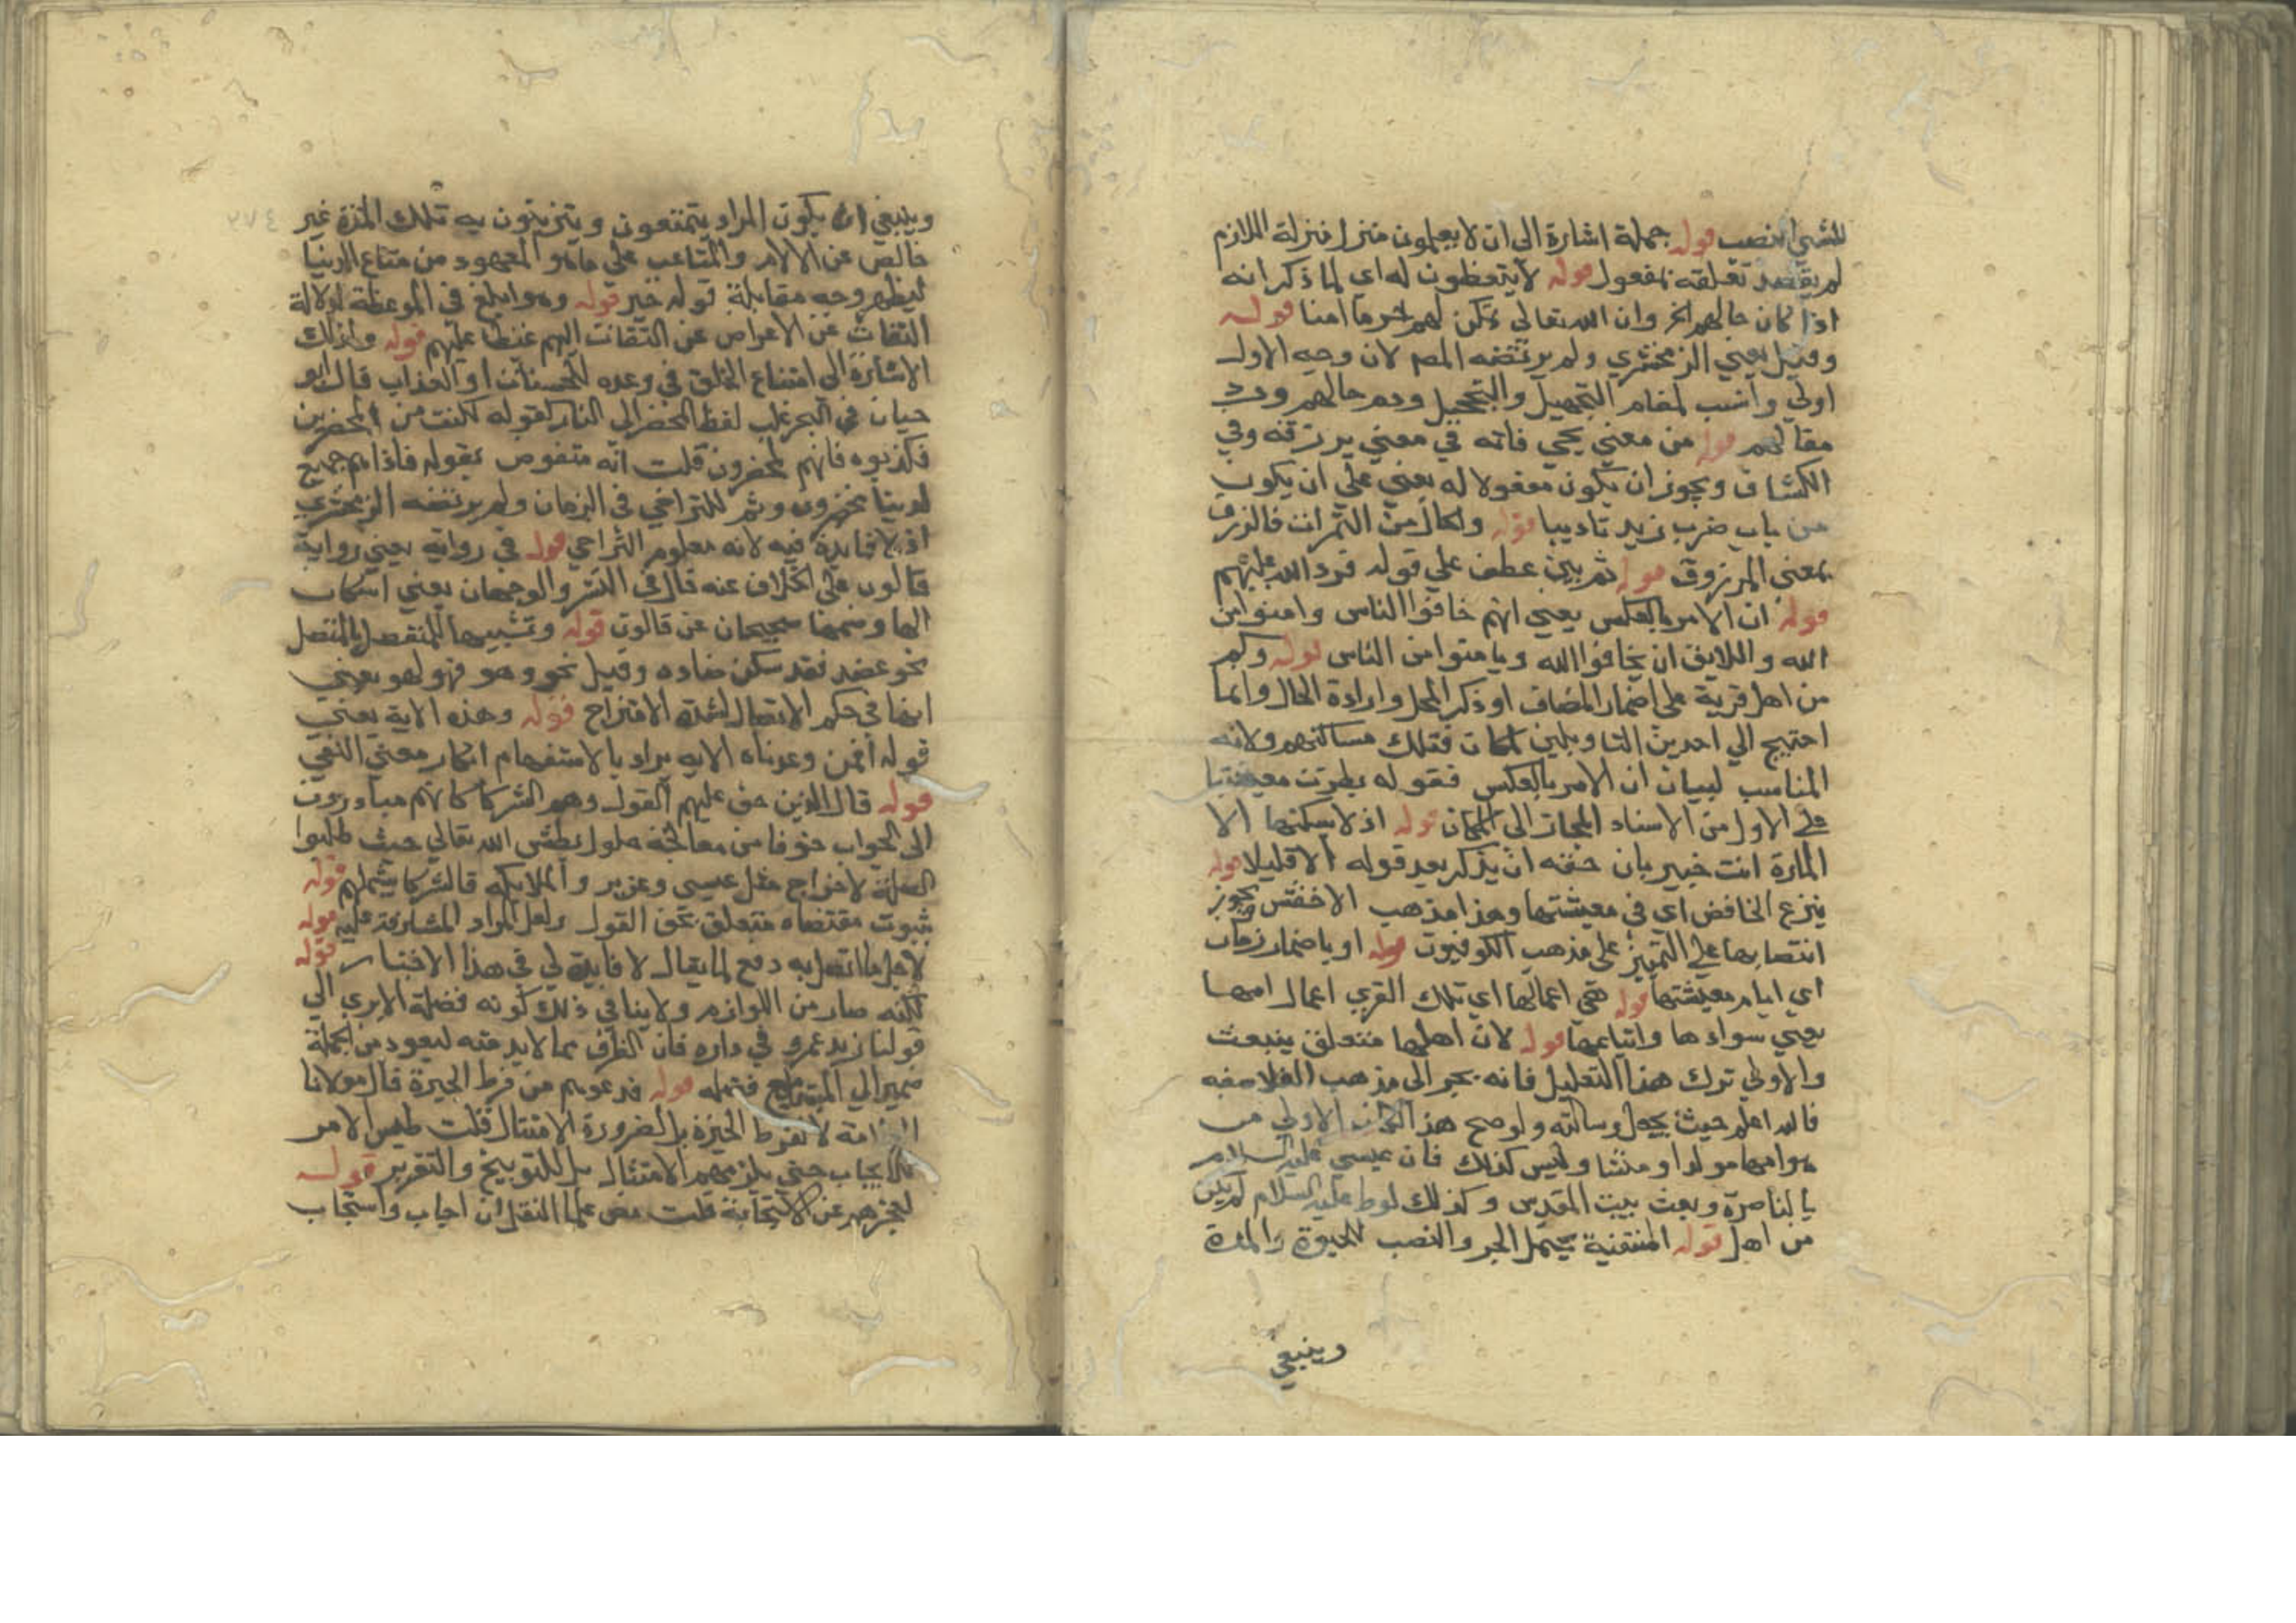 للمشي النصب قوله جملة اشارة الى ان لا يعلمون منزل منزلة اللازم
لم يقصد تعلقه بمفعول قوله لا يتفطنون له اي لما ذكر انه
اذا كان حالهم الخ وان الله تعالى يمكن لهم حرما امنا قوله
وقيل يعني الزمخشري ولم يرتضه المص لان وجه الاول
اولى وانسب لمقام التجهيل والتجهيل وهم حالهم ورد
مقالهم قوله من معنى يجبي فانه في معنى يرزقه وفي
الكشاف ويجوز ان يكون مفعولا له يعني على ان يكون
من باب ضرب زيد تاديبا قوله والحال من الثمرات فالرزق
بمعنى المرزوق قوله ثم بين عطف على قوله فرد الله عليهم
قوله ان الامر بالعكس يعني انهم خافوا الناس وامنوا من
الله واللايق ان يخافوا الله ويامنوا من الناس قوله وكم
من اهل قرية على اضمار المضاف او ذكر المحل وارادة الحال وانما
احتيج الى احد من التاويلين لمكان فتلك مساكنهم ولانه
المناسب لبيان ان الامر بالعكس فقوله بطرت معيشتها
على الاول من الاسناد المجازي الى المكان قوله اذ لا يسكنها الا
المارة انت خبير بان حقه ان يذكر بعد قوله الا قليلا قوله
بنزع الخافض اي في معيشتها وهذا مذهب الاخفش ويجوز
انتصابها على التمييز على مذهب الكوفيون قوله او باضمار زمان
اي ايام معيشتها قوله هي اعمالها اي تلك القرى اعمال امها
يعني سوادها واتباعها قوله لان اهلها متعلق بيبعث
والاولى ترك هذا التعليل فانه يجر الى مذهب الفلاسفه
فالله اعلم حيث يجعل رسالته ولو صح هذا لكان الاولى من
هو امها مولدا ومنشا وليس كذلك فان عيسى عليه السلام
بالناصرة وبعث ببيت المقدس وكذلك لوط عليه السلام لم يكن
من اهل قوله المنقضية يحتمل الجر والنصب للحيوة والمدة
وينبغي
وينبغي ان يكون المراد يتمتعون ويتزينون به تلك المدة غير
خالص عن الالام والمتاعب على ما هو المعهود من متاع الدنيا
ليظهر وجه مقابلة قوله خير قوله وهو ابلغ في الموعظة لدلالة
التفات عن الاعراض عن التفات اليهم غضبا عليهم قوله ولذلك
الاشارة الى امتناع الخلف في وعده للمحسنات او العذاب قال ابو
حيان في البحر غلب لفظ المحضر الى النار كقوله لكنت من المحضرين
فكذبوه فانهم لمحضرون قلت انه منقوص بقوله فاذا هم جميع
لدينا محضرون وثم للتراخي في الزمان ولم يرتضه الزمخشري
اذ لا فايدة فيه لانه معلوم التراخي قوله في رواية يعني رواية
قالون على اختلاف عنه قال في النشر والوجهان يعني اسكان
الها وضمها صحيحان عن قالون قوله وتشبيها للمنفصل بالمتصل
نحو عضد فقد سكن ضاده وقيل نحو وهو فهو لهو يعني
انها في حكم الاتصال لشدة الامتزاج قوله وهذه الاية يعني
قوله افمن وعدناه الايه يراد بالاستفهام انكار معنى النفي
قوله قال الذين حق عليهم القول وهم الشركا كانهم مبادرون
الى الجواب خوفا من معالجة حلول بطش الله تعالى حيث طلبوا
العلة لاخراج مثل عيسى وعزير والملايكه فالشركا يشملهم قوله
ثبوت مقتضاه متعلق بحق القول ولعل المراد المشارفة عليه قوله
لاجل ما اتصل به دفع لما يقال لا فايدة لي في هذا الاخبار قوله
لكنه صار من اللوازم ولا ينافي ذلك كونه فضلة الا يرى الى
قولنا زيد عمرو في داره فان الظرف مما لابد منه ليعود من الجملة
ضمير الى المبتدا قوله فدعوهم من فرط الحيرة قال مولانا
العلامة لا لفرط الحيرة بل لضرورة الامتثال قلت ليس الامر
للايجاب حتى يلزمهم الامتثال بل للتوبيخ والتقرير قوله
لعجزهم عن الاجابة قلت نص علما النقل ان اجاب واستجاب